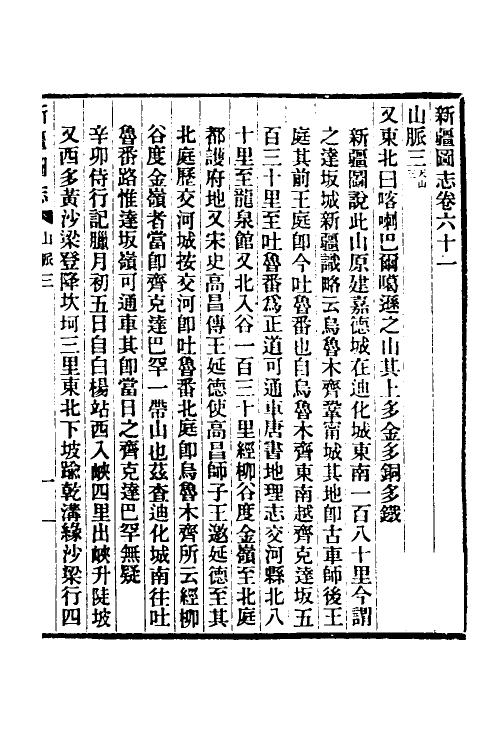 新疆圖志卷六十一
山脈三 天山三
又東北曰喀喇巴爾噶遜之山其上多金多銅多鐵
新疆圖說此山原建嘉德城在迪化城東南一百八十里今謂
之達坂城新疆識略云烏魯木齊鞏甯城其地卽古車師後王
庭其前王庭卽今吐魯番也自烏魯木齊東南越齊克達坂五
百三十里至吐魯番爲正道可通車唐書地理志交河縣北八
十里至龍泉館又北入谷一百三十里經柳谷度金嶺至北庭
都護府地又宋史高昌傳王延德使高昌師子王邀延德至其
北庭歷交河城按交河卽吐魯番北庭卽烏魯木齊所云經柳
谷度金嶺者當卽齊克達巴罕一帶山也茲査迪化城南往吐
魯番路惟達坂嶺可通車其卽當日之齊克達巴罕無疑
辛卯侍行記臘月初五日自白楊站西入峽四里出峽升陡坡
又西多黃沙梁登降坎坷三里東北下坡踰乾溝緣沙梁行四
新疆圖志 山脈三 一